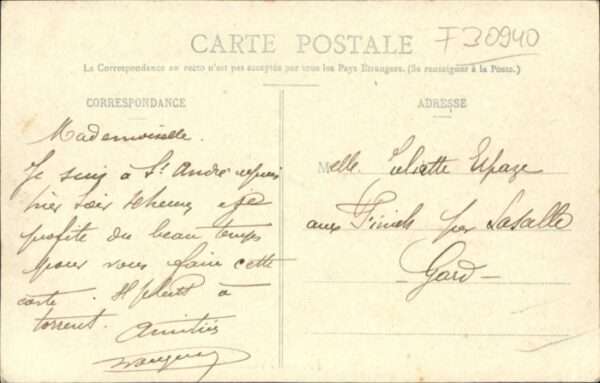 F30940
CARTE POSTALE
La Correspondance au recto n'est pas acceptée par tous les Pays Etrangers. (Se renseigner à la Poste.)
CORRESPONDANCE
Mademoiselle.
Je suis à St André depuis
hier soir
profite du beau temps
pour vous faire cette
carte. Il pleut à
torrent.
Amitiés
ADRESSE
Melle Juliette Espaze
aux par Lasalle
Gard